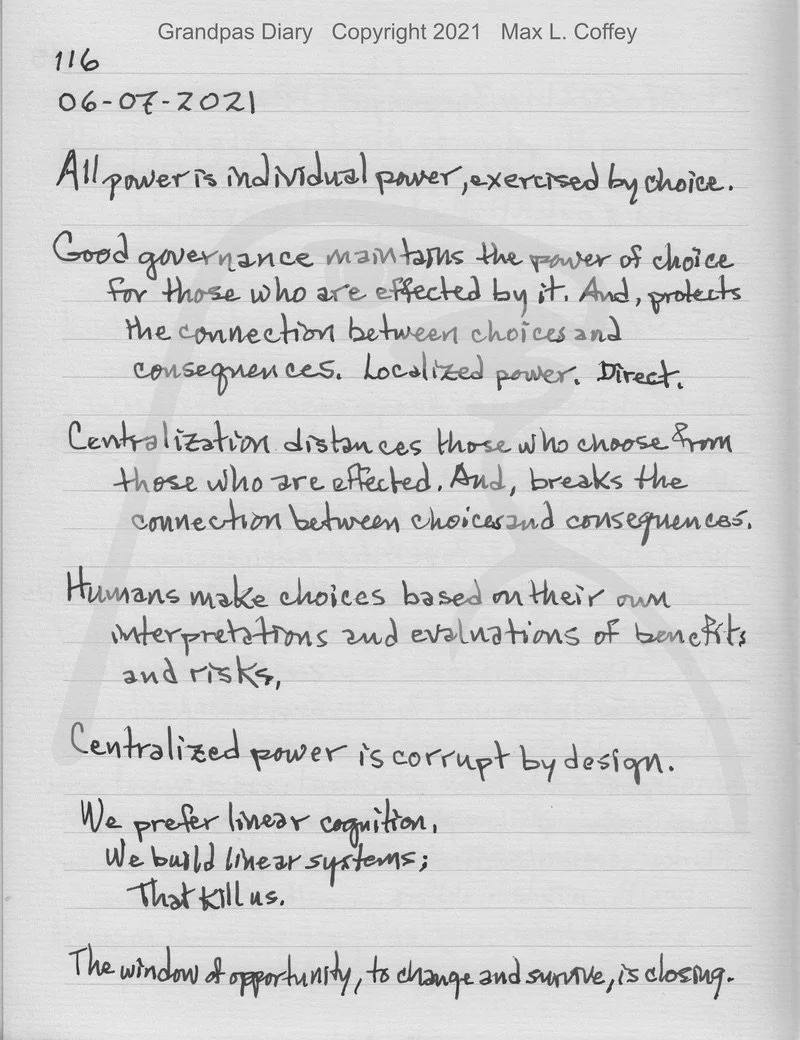 Grandpas Diary   Copyright 2021   Max L. Coffey
116
06-07-2021
All power is individual power, exercised by choice.
Good governance maintains the power of choice
for those who are effected by it. And, protects
the connection between choices and
consequences. Localized power. Direct.
Centralization distances those who choose from
those who are effected. And, breaks the
connection between choices and consequences.
Humans make choices based on their own
interpretations and evaluations of benefits
and risks,
Centralized power is corrupt by design.
We prefer linear cognition,
We build linear systems;
That kill us.
The window of opportunity, to change and survive, is closing.